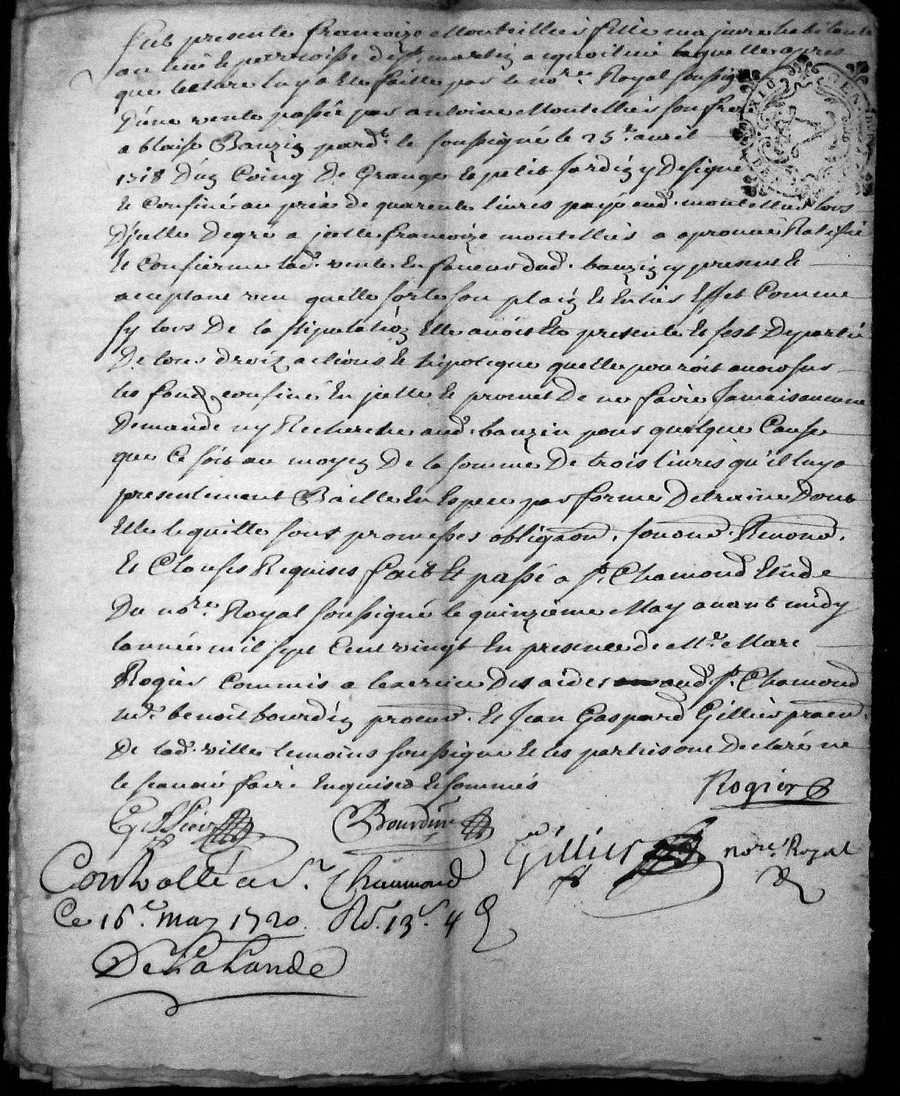 fut presente francoize Montellier fille majeure habitante
au lieu et perroisse de st martin a coalieu laquelle apres
que lecture luy a este faitte par le nore Royal soussigné
d'une vente passée par antoine Montellier son frere
a blaise Bauzin pardt le soussigné le 25e avril
1718 d'un Coing de Grange et petit Jardin y designe
et Confiné au prix de quarente livres payé aud. montellier lors
d'jcelle de gré a jcelle francoize montellier a aprouvé Ratiffié
et Confirme lad. vente en faveur dud. bauzin cy present et
acceptant veu quelle sorte son plain et entier Effet Comme
sy lors de la stipulation Elle avoit este presente et sest departie
de tous droiz actions et hipoteque quelle pouroit avoir sur
les fondz confiné En jcelle et promet de ne faire Jamais aucune
demande ny Recherche aud. bauzin pour quelque Cause
que Ce soit au moyen de la somme de trois livres qu'il luy a
presentement Baillé En Espece par forme detraine dont
Elle le quitte sous promesses obligaons, renonc.
et Clauses Requises fait et passé a st. Chamond Etude
du nore Royal soussigné le quinzieme May avant midy
lannée mil sept Cent vingt En presence de Mr. Marc
Rogier Commis a lexercice des aides aud. st. Chamond
Mr. benoit bourdin procur. et Jean Gaspard Gillier pratn.
de lad. ville temoins soussignes et les parties ont declaré ne
le scavoir faire Enquises et sommés
Rogier
Gillier Bourdin
Gillier nore Royal
Controllé a st. Chaumond
Ce 16e may 1720. Rd. 13s 4d
De La Lande